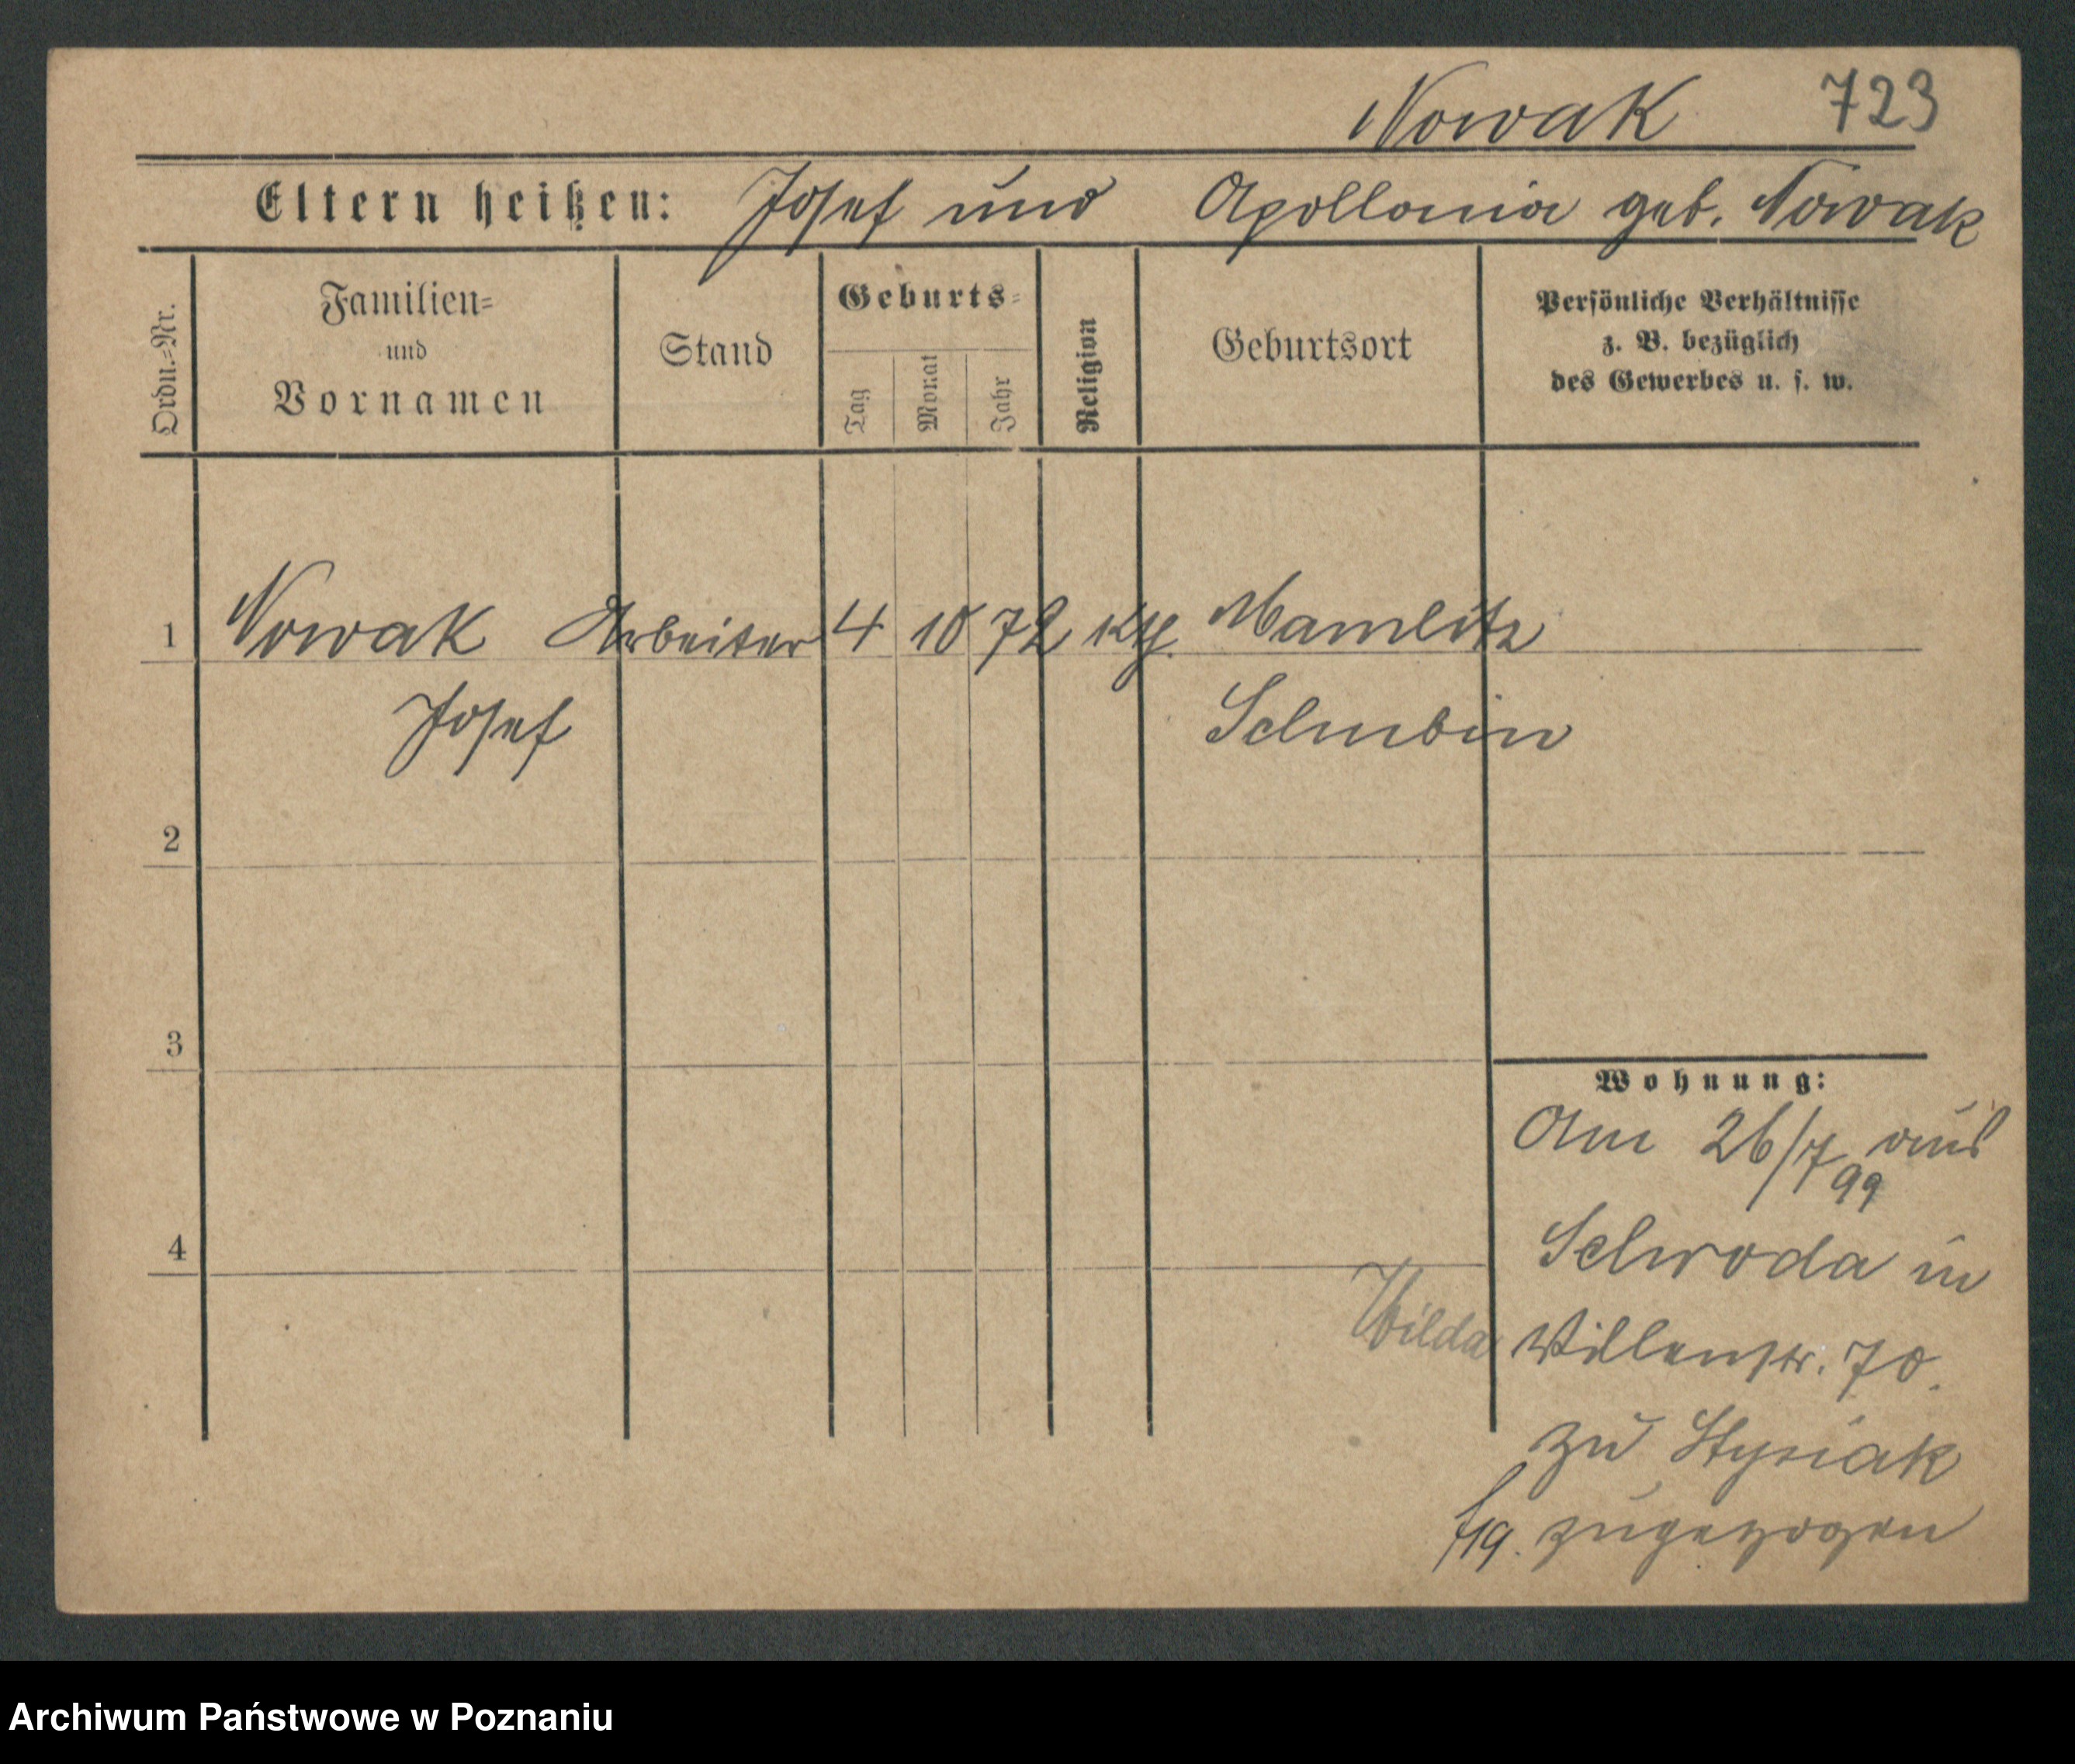 Nowak 723
Eltern heißen: Josef und Apollonia geb. Nowak
Ordn.=Nr.
Familien=
und
Vornamen
Stand
Geburts=
Tag
Monat
Jahr
Religion
Geburtsort
Persönliche Verhältnisse
z. B. bezüglich
des Gewerbes u. s. w.
1 Nowak Arbeiter 4 10 72 Mamlitz
Josef Schubin
2
3
4
Wohnung:
Am 26/7 99 aus
Schroda in
Wilda Villenstr. 70.
zu Stysiak
zugezogen
Archiwum Państwowe w Poznaniu